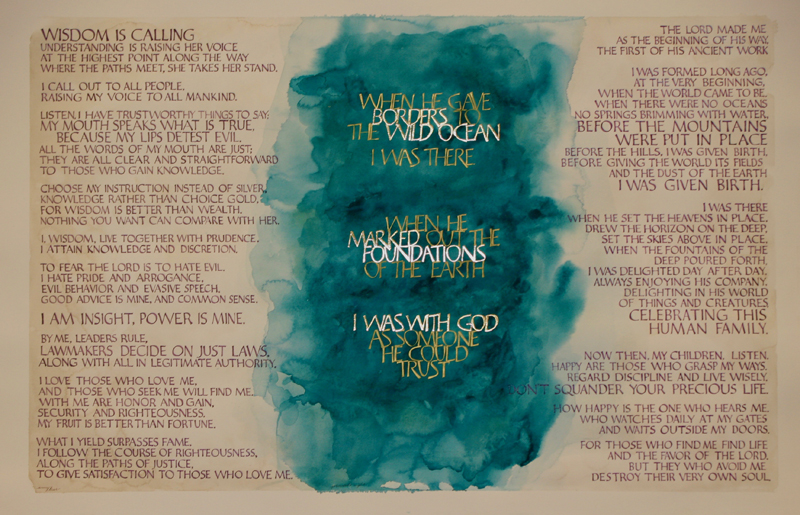 WISDOM IS CALLING
UNDERSTANDING IS RAISING HER VOICE
AT THE HIGHEST POINT ALONG THE WAY
WHERE THE PATHS MEET, SHE TAKES HER STAND.
I CALL OUT TO ALL PEOPLE,
RAISING MY VOICE TO ALL MANKIND.
LISTEN I HAVE TRUSTWORTHY THINGS TO SAY;
MY MOUTH SPEAKS WHAT IS TRUE,
BECAUSE MY LIPS DETEST EVIL.
ALL THE WORDS OF MY MOUTH ARE JUST;
THEY ARE ALL CLEAR AND STRAIGHTFORWARD
TO THOSE WHO GAIN KNOWLEDGE.
CHOOSE MY INSTRUCTION INSTEAD OF SILVER,
KNOWLEDGE RATHER THAN CHOICE GOLD,
FOR WISDOM IS BETTER THAN WEALTH,
NOTHING YOU WANT CAN COMPARE WITH HER.
I, WISDOM, LIVE TOGETHER WITH PRUDENCE,
I ATTAIN KNOWLEDGE AND DISCRETION.
TO FEAR THE LORD IS TO HATE EVIL.
I HATE PRIDE AND ARROGANCE,
EVIL BEHAVIOR AND EVASIVE SPEECH,
GOOD ADVICE IS MINE, AND COMMON SENSE.
I AM INSIGHT, POWER IS MINE.
BY ME, LEADERS RULE,
LAWMAKERS DECIDE ON JUST LAWS,
ALONG WITH ALL IN LEGITIMATE AUTHORITY.
I LOVE THOSE WHO LOVE ME,
AND THOSE WHO SEEK ME WILL FIND ME.
WITH ME ARE HONOR AND GAIN,
SECURITY AND RIGHTEOUSNESS.
MY FRUIT IS BETTER THAN FORTUNE.
WHAT I YIELD SURPASSES FAME.
I FOLLOW THE COURSE OF RIGHTEOUSNESS,
ALONG THE PATHS OF JUSTICE,
TO GIVE SATISFACTION TO THOSE WHO LOVE ME.
WHEN HE GAVE
BORDERS TO
THE WILD OCEAN
I WAS THERE
WHEN HE
MARKED OUT THE
FOUNDATIONS
OF THE EARTH
I WAS WITH GOD
AS SOMEONE
HE COULD
TRUST
THE LORD MADE ME
AS THE BEGINNING OF HIS WAY,
THE FIRST OF HIS ANCIENT WORK
I WAS FORMED LONG AGO,
AT THE VERY BEGINNING,
WHEN THE WORLD CAME TO BE.
WHEN THERE WERE NO OCEANS
NO SPRINGS BRIMMING WITH WATER,
BEFORE THE MOUNTAINS
WERE PUT IN PLACE
BEFORE THE HILLS, I WAS GIVEN BIRTH,
BEFORE GIVING THE WORLD ITS FIELDS
AND THE DUST OF THE EARTH
I WAS GIVEN BIRTH.
I WAS THERE
WHEN HE SET THE HEAVENS IN PLACE,
DREW THE HORIZON ON THE DEEP,
SET THE SKIES ABOVE IN PLACE,
WHEN THE FOUNTAINS OF THE
DEEP POURED FORTH,
I WAS DELIGHTED DAY AFTER DAY,
ALWAYS ENJOYING HIS COMPANY,
DELIGHTING IN HIS WORLD
OF THINGS AND CREATURES
CELEBRATING THIS
HUMAN FAMILY.
NOW THEN, MY CHILDREN, LISTEN,
HAPPY ARE THOSE WHO GRASP MY WAYS,
REGARD DISCIPLINE AND LIVE WISELY,
DON'T SQUANDER YOUR PRECIOUS LIFE.
HOW HAPPY IS THE ONE WHO HEARS ME,
WHO WATCHES DAILY AT MY GATES
AND WAITS OUTSIDE MY DOORS.
FOR THOSE WHO FIND ME FIND LIFE
AND THE FAVOR OF THE LORD,
BUT THEY WHO AVOID ME
DESTROY THEIR VERY OWN SOUL.